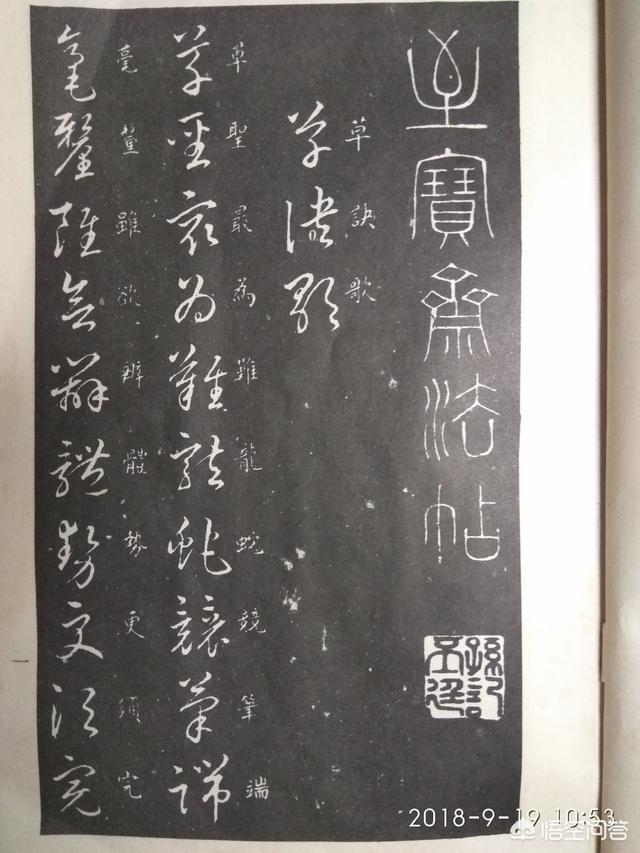 至寶齋法帖
草訣歌
草訣歌
草聖最為難龍蛇競筆端
草聖最為難龍蛇競筆端
毫釐雖欲辨體勢更須完
毫釐雖欲辨體勢更須完
一
2018-9-19 10:53
悟空问答